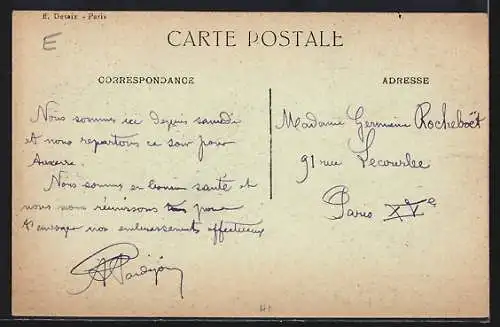 E. Desaix - Paris
E
CARTE POSTALE
CORRESPONDANCE
ADRESSE
Nous sommes ici depuis samedi
et nous repartons ce soir pour
Auxerre.
Nous sommes en bonne santé et
nous nous réunissons pour
t'envoyer nos embrassements affectueux
Madame Germaine Rocheboët
91 rue Lecourbe
Paris XVe